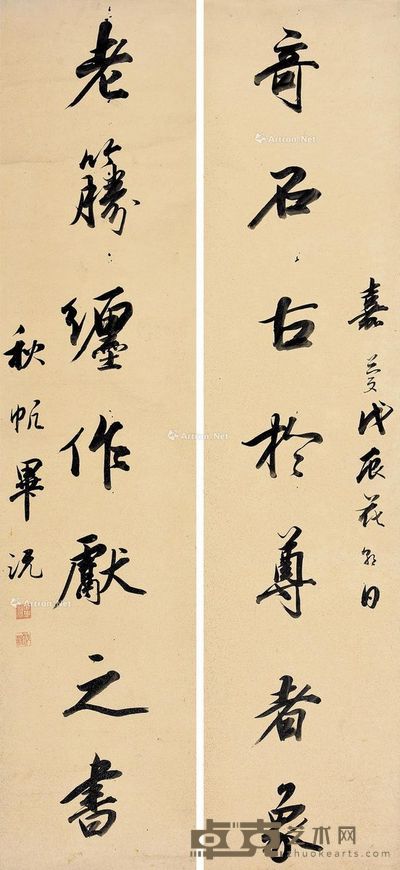 嘉慶戊辰花朝日
奇石古於尊者象
老籐纏作獻之書
秋帆畢沅
Artron.Net
Artron.Net
Artron.Net
卓克艺术网
zhuokearts.com